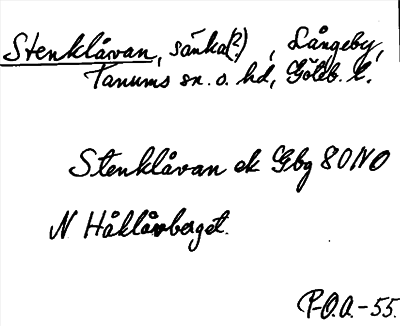 Stenklåvan, sänka(?), Långeby,
Tanums sn. o. hd, Göteb. l.
Stenklåvan ek Gbg 80 NO
N Håklåvberget.
P-O.A.-55.